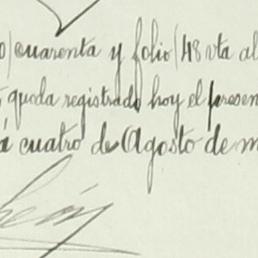 0/ cuarenta y folio /48 vta al
queda registrado hoy el presen
á cuatro de Agosto de m